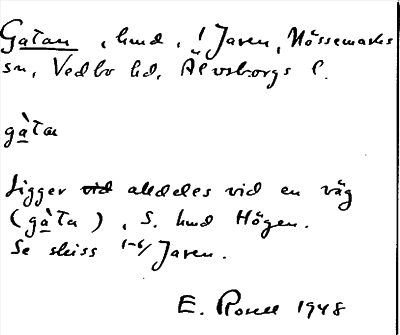 Gatan, hmd, 1/ Javen, Nössemarks
sn, Vedbo hd, Älvsborgs l.
gàtan
Ligger vid alldeles vid en väg
(gàta), S. hmd Högen.
Se skiss 1-6/ Javen.
E. 1948